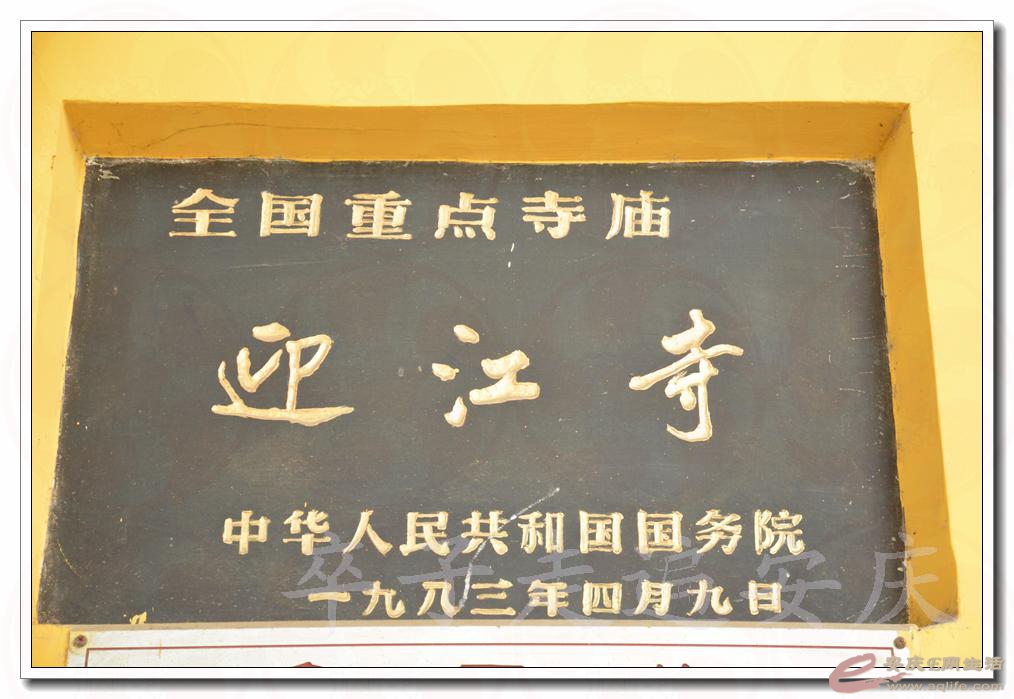 全国重点寺庙
迎江寺
中华人民共和国国务院
一九八三年四月九日
卒子走追安庆
安庆E网生活
www.aqlife.com